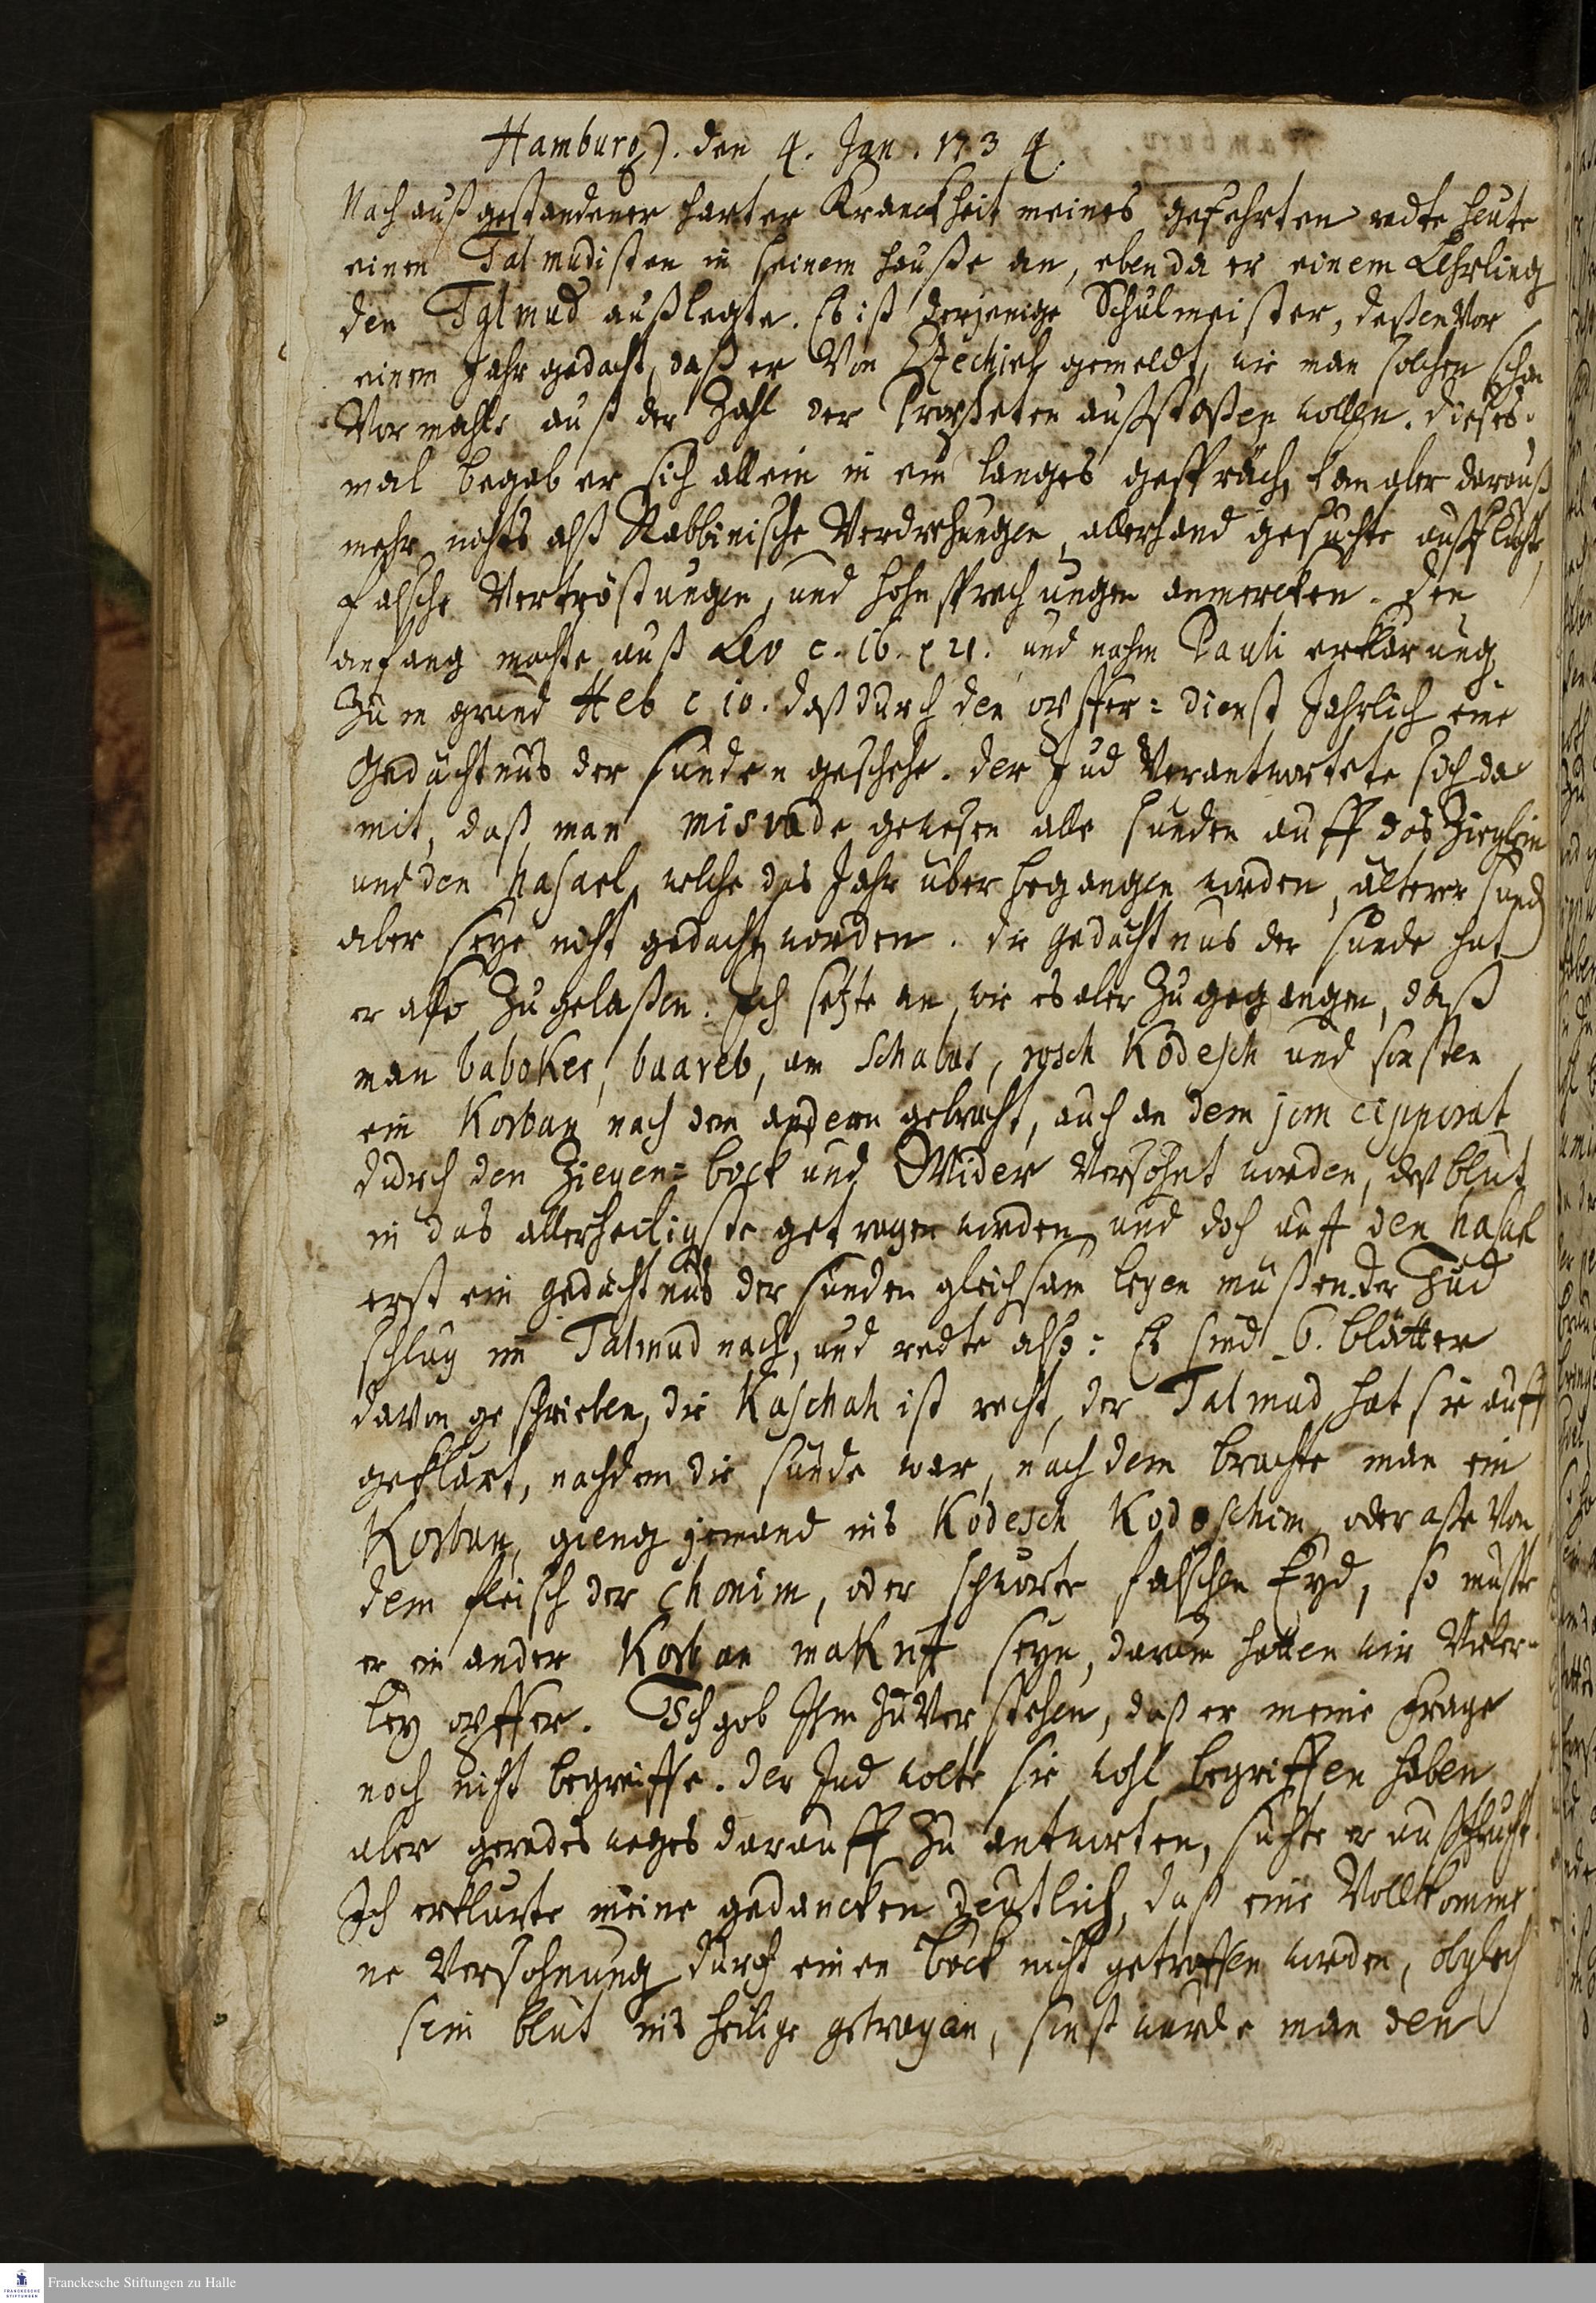 Hamburg). den 4. Jan. 1734.
Nach außgestandener harter Kranckheit meines gefehrten redte heute
einen Talmudisten in seinem hauße an, eben da er einem Lehrling
den Talmud außlegte. Es ist derjenige Schulmeister, deßen vor
einem Jahr gedacht, daß er von Ezechiel gemeldt, wie man solchen schon
vormahls auß der Zahl der Propheten außstoßen wollen. dieses
mal begab er sich allein in ein langes gespräch, kan aber darauß
mehr nichts alß Rabbinische Verdrehungen, allerhand gesuchte außflüchte,
falsche Vertröstungen, und hohnsprechungen anmercken. den
anfang machte auß Lev c. 16. 21. und nahm Pauli erklärung
zum grund Heb c 10. daß durch den opffer= dienst Jahrlich eine
Gedächtnüs der sünden geschehe. der Jud verantwortete sich da
mit, daß man misvade gewesen alle sünden auff das Zieglein
und den hasael, welche das Jahr über begangen worden, älterer sünd
aber seye nicht gedacht worden. die gedächtnus der sünde hat
er also zugelaßen. Ich setzte an, wie es aber zugegangen, daß
man baboker, baareb, am Schabas, rosch Kodesch und sonsten
ein Korban nach dem andern gebracht, auch an dem jom cipporat
durch den Ziegen= bock und Wider versöhnt worden, deß blut
in das allerheiligste getragen worden und doch auff den hasael
erst ein gedächtnus der sünden gleichsam legen müßen. der Jud
schlug im Talmud nach, und redte also: Es sind 6. blätter
davon geschrieben, die Kaschah ist recht, der Talmud hat sie auff
geklärt, nachdem die sünde war, nach dem brachte man ein
Korban, gieng jemand ins Kodesch Kodoschim oder aße von
dem fleisch der Chonim, oder schwerte falschen Eyd, so muste
er ein ander Korban makrif seyn, darum hatten wir vieler=
ley opffer. Ich gab Ihm zu verstehen, daß er meine Frage
noch nicht begreiffe. der Jud wolte sie wohl begriffen haben
aber gerades weges darauff zu antworten, suchte er außflucht.
Ich erklärte meine gedancken deutlich, daß eine Vollkomme
ne Versöhnung durch einen bock nicht getroffen worden, obgleich
sein blut ins heilige getragen, sonst wurde man den